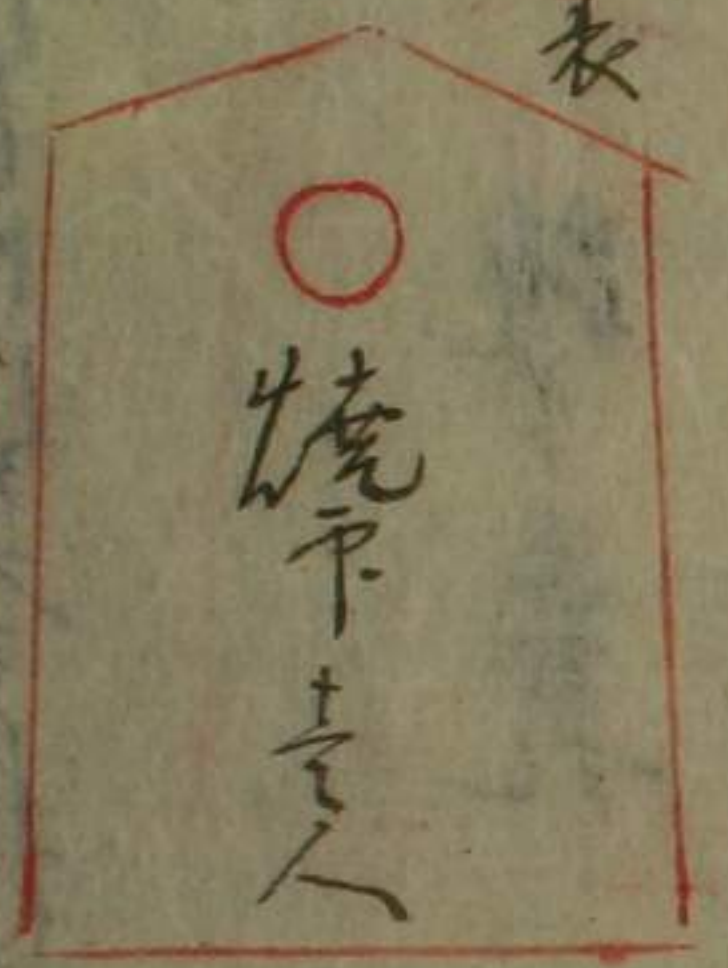 表
燒印壱人